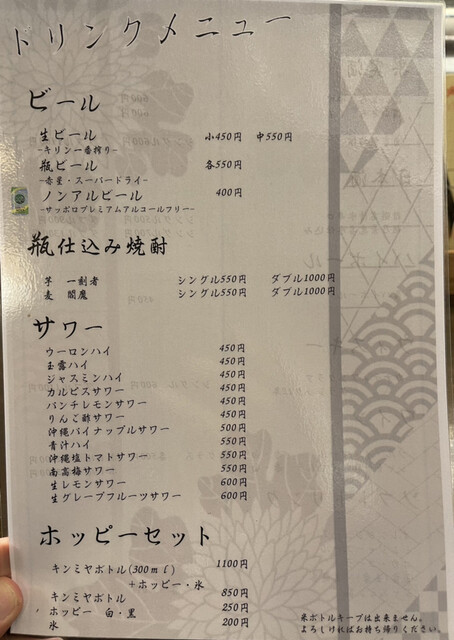 トリンクメニュー
ビール
生ビール 小450円 中550円
-キリン一番搾り-
瓶ビール 各550円
-赤星・スーパードライ-
ノンアルビール 400円
-サッポロプレミアムアルコールフリー-
瓶仕込み焼酎
芋 一剳者 シングル550円 ダブル1000円
麦 閻魔 シングル550円 ダブル1000円
サワー
ウーロンハイ 450円
玉露ハイ 450円
ジャスミンハイ 450円
カルピスサワー 450円
パンチレモンサワー 450円
りんご酢サワー 450円
沖縄パイナップルサワー 500円
青汁ハイ 550円
沖縄塩トマトサワー 550円
南高梅サワー 550円
生レモンサワー 600円
生グレープフルーツサワー 600円
ホッピーセット
キンミヤボトル(300ml) 1100円
+ホッピー・氷
キンミヤボトル 850円
ホッピー 白・黒 250円
氷 200円
※ボトルキープは出来ません。
よろしければお持ち帰りください。